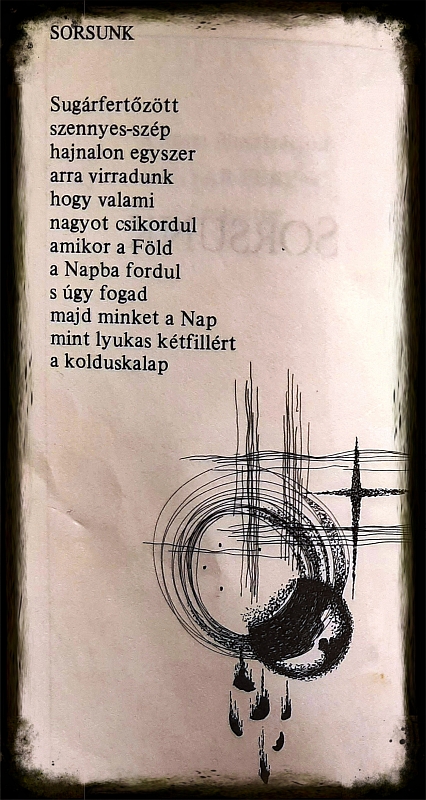 SORSUNK
Sugárfertőzött
szennyes-szép
hajnalon egyszer
arra virradunk
hogy valami
nagyot csikordul
amikor a Föld
a Napba fordul
s úgy fogad
majd minket a Nap
mint lyukas kétfillért
a kolduskalap